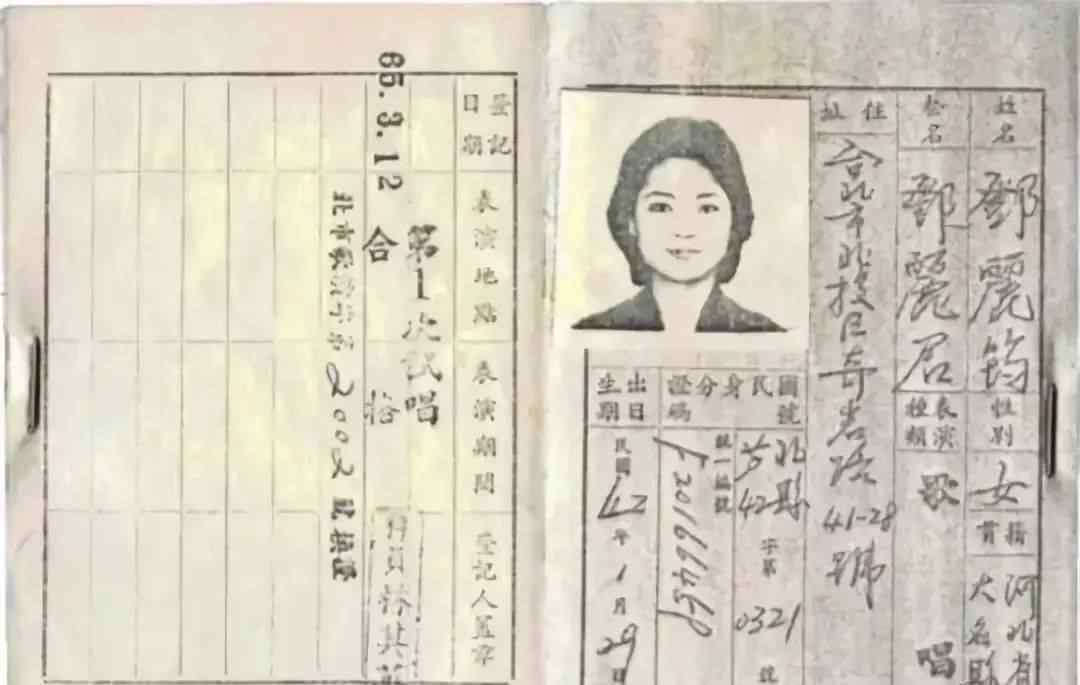 姓名
鄧麗筠
性別
女
籍貫
河北省
大名縣
藝名
鄧麗君
表演種類
歌唱
住址
台北市北投區奇岩路41-28號
國民身分證號碼
北縣
42字第0321號
統一編號
出生日期
民國42年1月29日
登記日期
表演地點
表演期間
登記人蓋章
第1次試唱
65.3.12
合格
北市
2002號換證